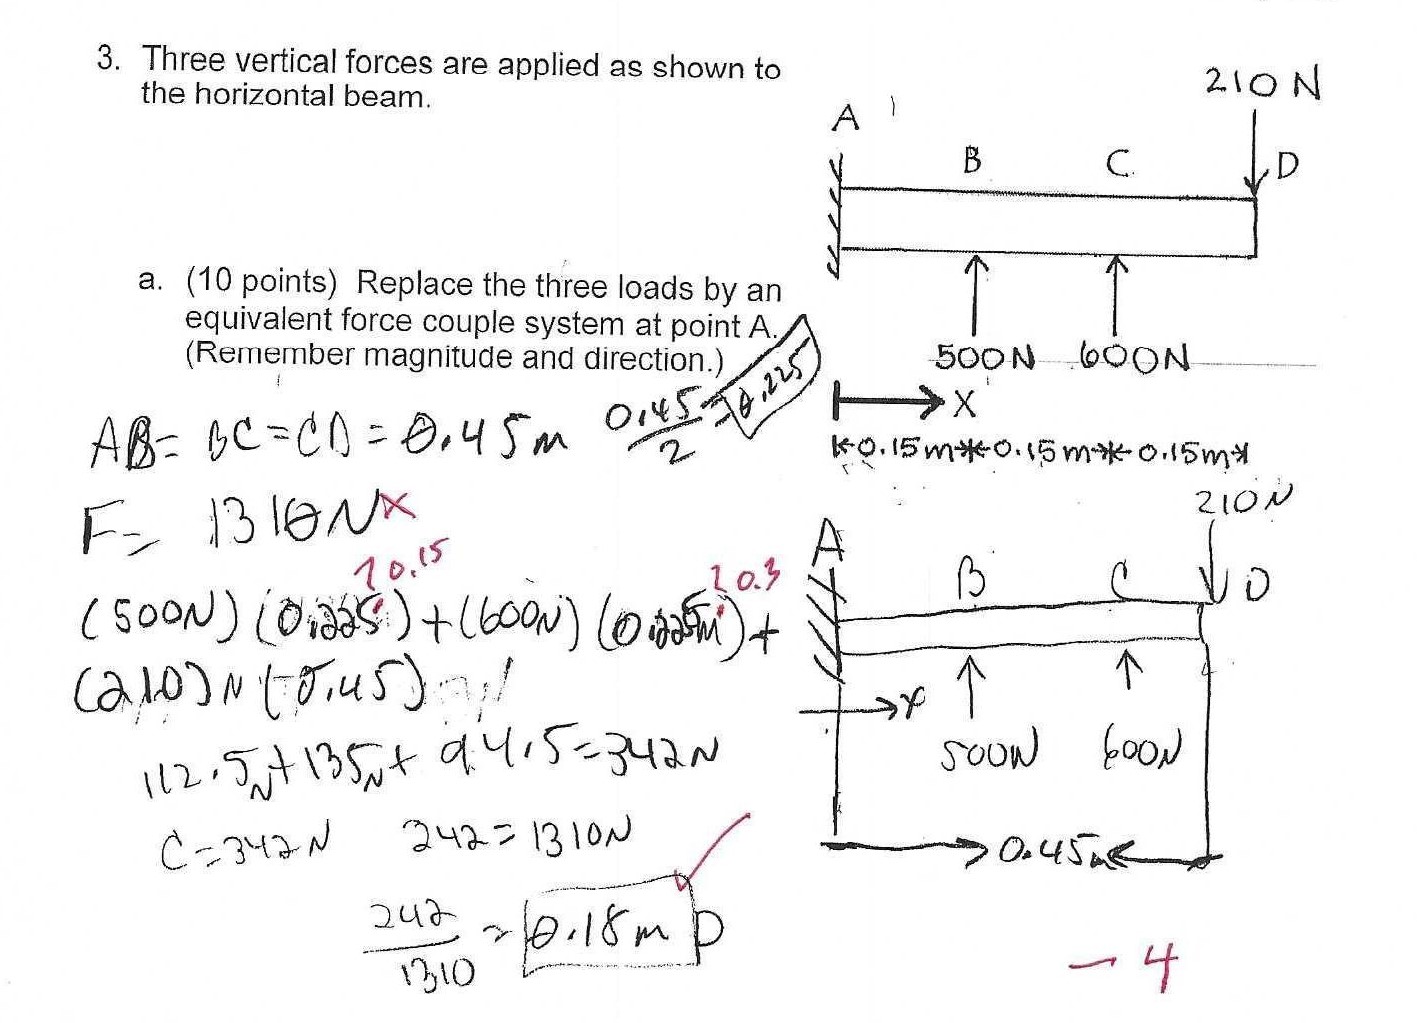 3. Three vertical forces are applied as shown to
the horizontal beam.
210 N
A
B
C
D
500N 600N
X
0.15m 0.15m 0.15m
a. (10 points) Replace the three loads by an
equivalent force couple system at point A.
(Remember magnitude and direction.)
AB = BC = CD = 0.45m
0.45/2 = 0.225
F = 1310N x
0.15
0.3
(500N) (0.225) + (600N) (0.225m) +
(210)N (0.45)
112.5N + 135N + 94.5 = 342N
C = 342N 342 = 1310N
342/1310 = 0.18m D
210N
A
B
C
D
x
500N 600N
0.45m
-4